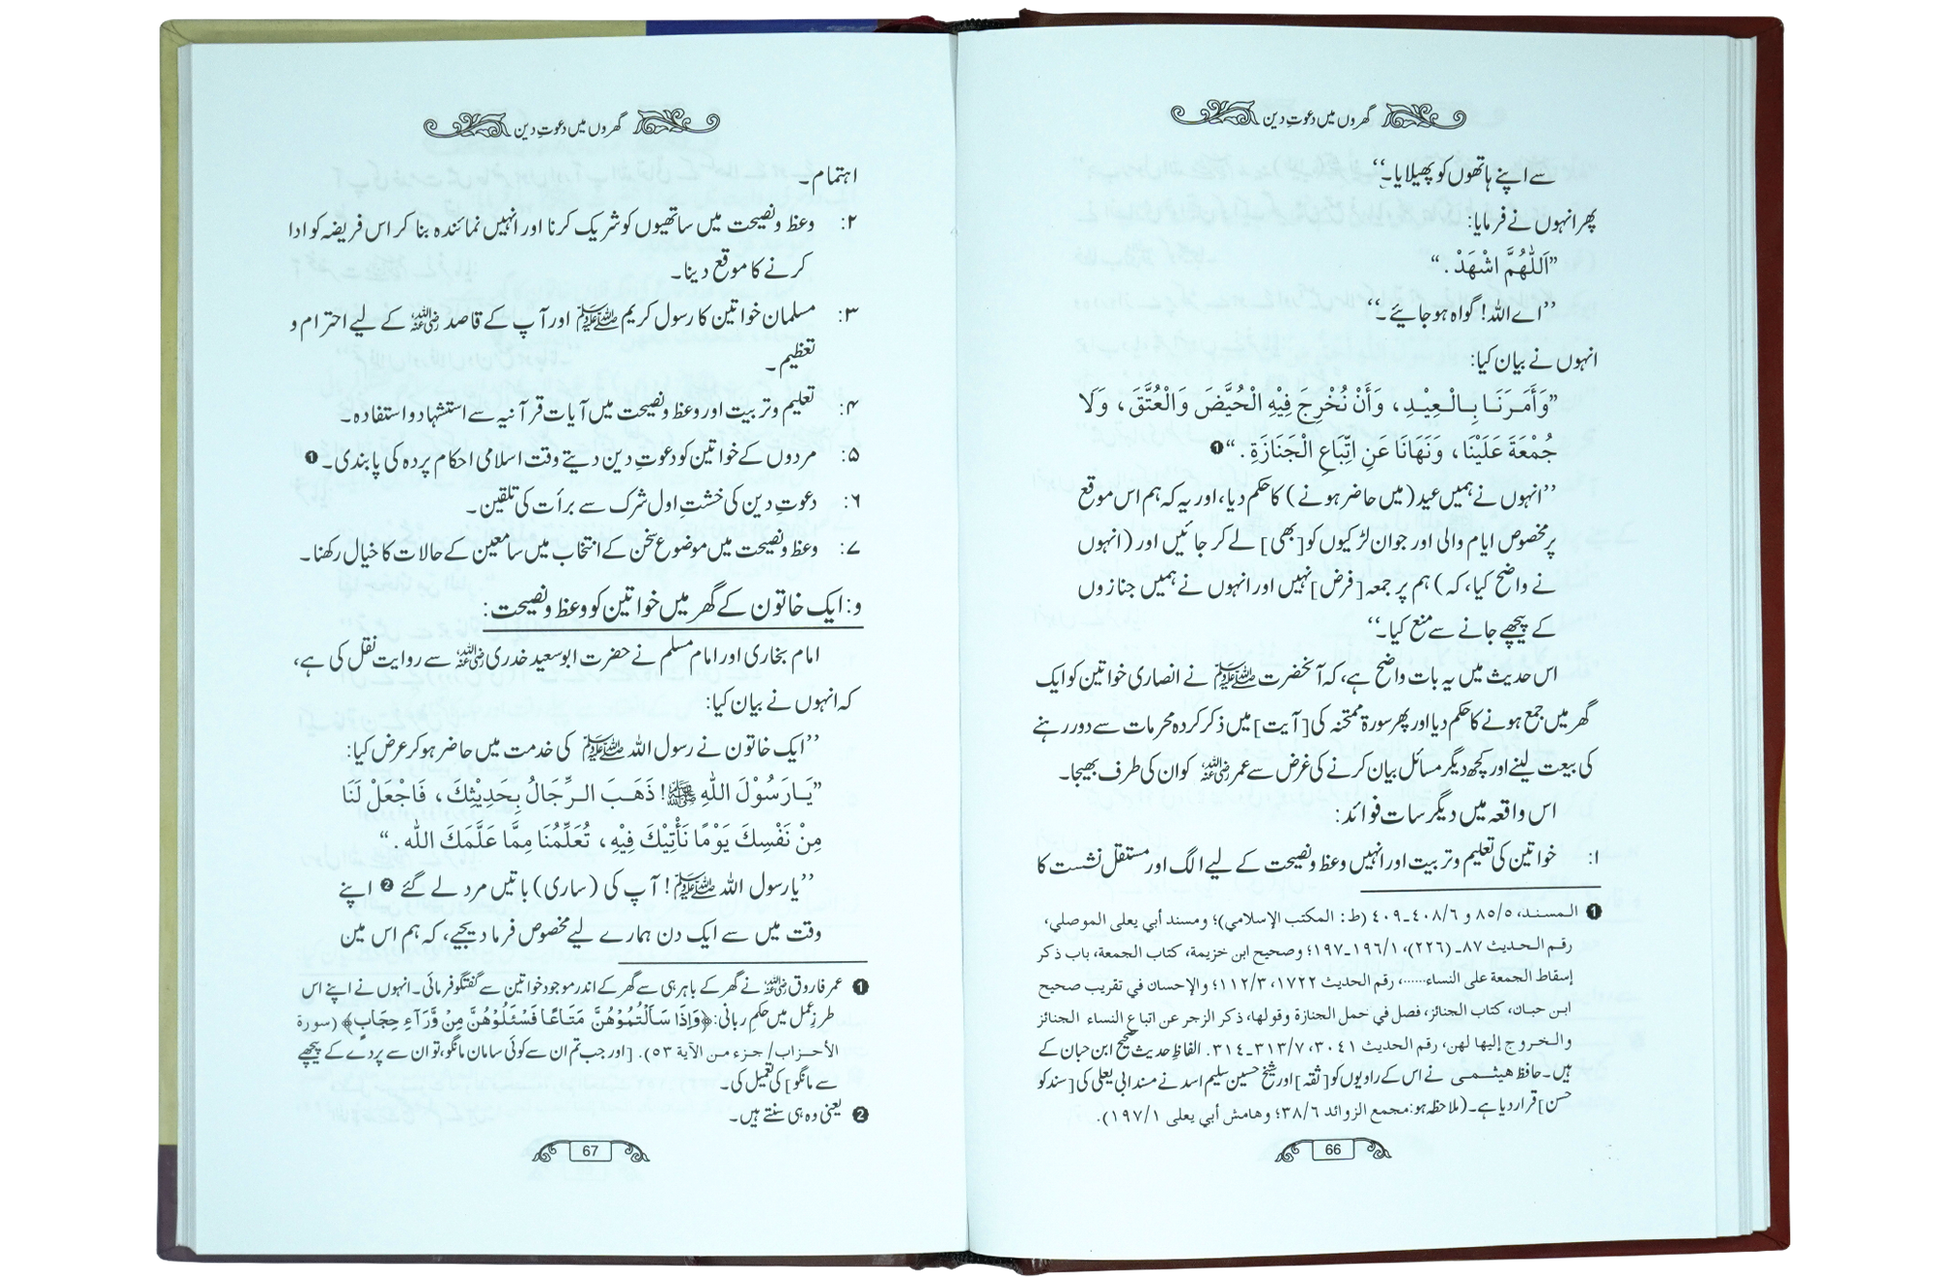 گھروں میں دعوتِ دین
سے اپنے ہاتھوں کو پھیلایا۔‘‘
پھر انہوں نے فرمایا:
”اَللّٰهُمَّ اشْهَدْ.“
’’اے اللہ! گواہ ہو جائیے۔‘‘
انہوں نے بیان کیا:
”وَأَمَرَنَا بِالْعِيْدِ، وَأَنْ نُخْرِجَ فِيْهِ الْحُيَّضَ وَالْعُتَّقَ، وَلَا
جُمْعَةَ عَلَيْنَا، وَنَهَانَا عَنِ اتِّبَاعِ الْجَنَازَةِ.“❶
’’انہوں نے ہمیں عید (میں حاضر ہونے) کا حکم دیا، اور یہ کہ ہم اس موقع
پر مخصوص ایام والی اور جوان لڑکیوں کو [بھی] لے کر جائیں اور (انہوں
نے واضح کیا، کہ) ہم پر جمعہ [فرض] نہیں اور انہوں نے ہمیں جنازوں
کے پیچھے جانے سے منع کیا۔‘‘
اس حدیث میں یہ بات واضح ہے، کہ آنحضرت ﷺ نے انصاری خواتین کو ایک
گھر میں جمع ہونے کا حکم دیا اور پھر سورۃ ممتحنہ کی [آیت] میں ذکر کردہ محرمات سے دور رہنے
کی بیعت لینے اور کچھ دیگر مسائل بیان کرنے کی غرض سے عمر رضی اللہ عنہ کو ان کی طرف بھیجا۔
اس واقعہ میں دیگر سات فوائد:
۱: خواتین کی تعلیم و تربیت اور انہیں وعظ و نصیحت کے لیے الگ اور مستقل نشست کا
❶ المسند، ٨٥/٥ و ٤٠٨/٦ـ٤٠٩ (ط: المكتب الإسلامي)؛ ومسند أبي يعلى الموصلي،
رقم الحديث ٨٧ـ (٢٢٦)، ١٩٦/١ـ١٩٧؛ وصحيح ابن خزيمة، كتاب الجمعة، باب ذكر
إسقاط الجمعة على النساء......، رقم الحديث ١٧٢٢، ١١٢/٣؛ والإحسان في تقريب صحيح
ابن حبان، كتاب الجنائز، فصل في حمل الجنازة وقولها، ذكر الزجر عن اتباع النساء الجنائز
والخروج إليها لهن، رقم الحديث ٣٠٤١، ٣١٣/٧ـ٣١٤. الفاظِ حدیث صحیح ابن حبان کے
ہیں۔ حافظ ہیثمی نے اس کے راویوں کو [ثقہ] اور شیخ حسین سلیم اسد نے مسند ابی یعلی کی [سند کو
حسن] قرار دیا ہے۔ (ملاحظہ ہو: مجمع الزوائد ٣٨/٦؛ وهامش أبي يعلى ١٩٧/١).
66
گھروں میں دعوتِ دین
اہتمام۔
۲: وعظ و نصیحت میں ساتھیوں کو شریک کرنا اور انہیں نمائندہ بنا کر اس فریضہ کو ادا
کرنے کا موقع دینا۔
۳: مسلمان خواتین کا رسول کریم ﷺ اور آپ کے قاصد رضی اللہ عنہ کے لیے احترام و
تعظیم۔
۴: تعلیم و تربیت اور وعظ و نصیحت میں آیات قرآنیہ سے استشہاد و استفادہ۔
۵: مردوں کے خواتین کو دعوتِ دین دیتے وقت اسلامی احکام پردہ کی پابندی۔❶
۶: دعوتِ دین کی خشتِ اول شرک سے برأت کی تلقین۔
۷: وعظ و نصیحت میں موضوع سخن کے انتخاب میں سامعین کے حالات کا خیال رکھنا۔
و: ایک خاتون کے گھر میں خواتین کو وعظ و نصیحت:
امام بخاری اور امام مسلم نے حضرت ابوسعید خدری رضی اللہ عنہ سے روایت نقل کی ہے،
کہ انہوں نے بیان کیا:
’’ایک خاتون نے رسول اللہ ﷺ کی خدمت میں حاضر ہو کر عرض کیا:
”يَارَسُوْلَ اللّٰهِ ﷺ! ذَهَبَ الرِّجَالُ بِحَدِيْثِكَ، فَاجْعَلْ لَنَا
مِنْ نَفْسِكَ يَوْمًا نَأْتِيْكَ فِيْهِ، تُعَلِّمُنَا مِمَّا عَلَّمَكَ اللّٰه.“
’’یارسول اللہ ﷺ! آپ کی (ساری) باتیں مرد لے گئے ❷ اپنے
وقت میں سے ایک دن ہمارے لیے مخصوص فرما دیجیے، کہ ہم اس میں
❶ عمر فاروق رضی اللہ عنہ نے گھر کے باہر ہی سے گھر کے اندر موجود خواتین سے گفتگو فرمائی۔ انہوں نے اپنے اس
طرزِ عمل میں حکم ربانی: ﴿وَاِذَا سَاَلْتُمُوْهُنَّ مَتَاعًا فَسْئَلُوْهُنَّ مِنْ وَّرَآءِ حِجَابٍ﴾ (سورة
الأحزاب/ جزء من الآية ٥٣). [اور جب تم ان سے کوئی سامان مانگو، تو ان سے پردے کے پیچھے
سے مانگو] کی تعمیل کی۔
❷ یعنی وہ ہی سنتے ہیں۔
67